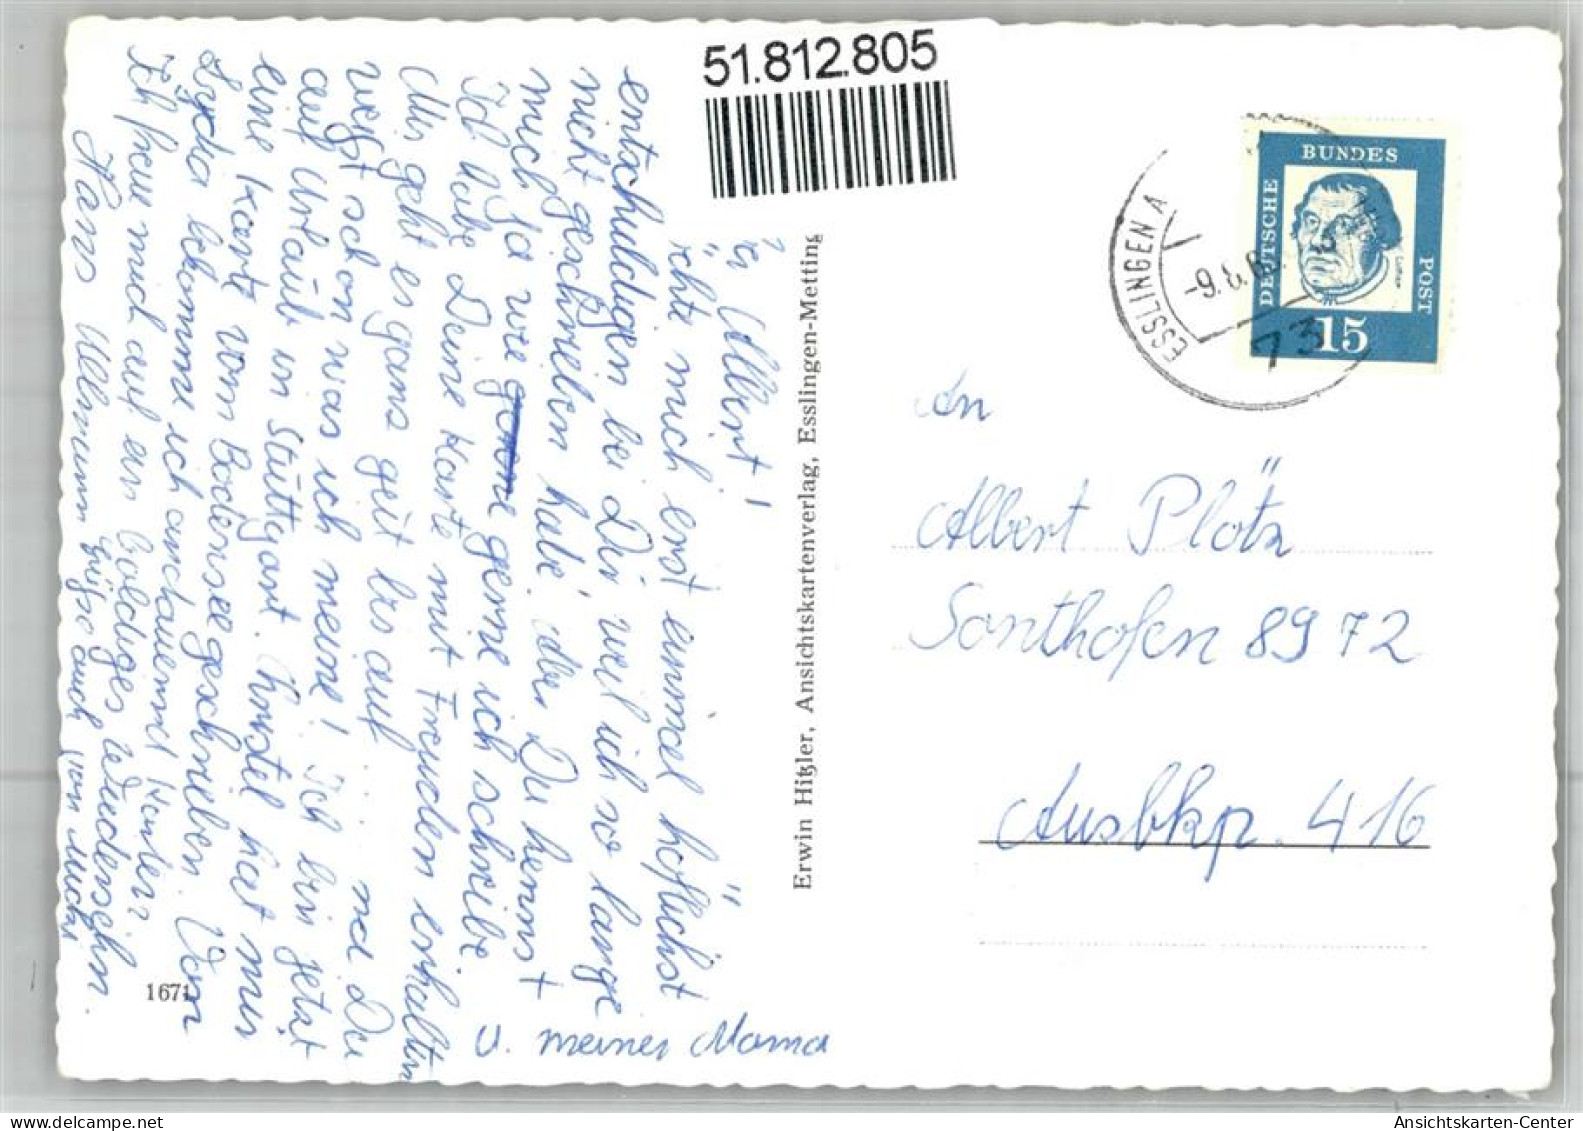 51.812.805
Albert!
chte mich erst einmal höflichst
entschuldigen bei Dir weil ich so lange
nicht geschrieben habe, aber Du kennst
mich ja wie gerne ich schreibe.
Ich habe Deine Karte mit Freuden erhalten
Mir geht es ganz gut bis auf ..... na Du
weist schon was ich meine! Ich bin jetzt
auf Urlaub in Stuttgart. Christel hat mir
eine Karte vom Bodensee geschrieben. Von
Lyda bekomme ich auch Karten
Ich freue mich auf ein baldiges Wiedersehn.
Hans Ullmann
Grüße auch von Muttsi
u. meiner Mama
1671
Erwin Hitzler, Ansichtskartenverlag, Esslingen-Metting
ESSLINGEN A
-9.8.6
73
DEUTSCHE
BUNDES
POST
Luther
15
An
Albert Plötz
Sonthofen 8972
Ausbkp. 416
Ansichtskarten-Center